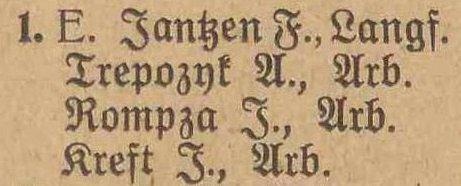 1. E. Jantzen F., Langf.
Trepozyk A., Arb.
Rompza J., Arb.
Kreft J., Arb.